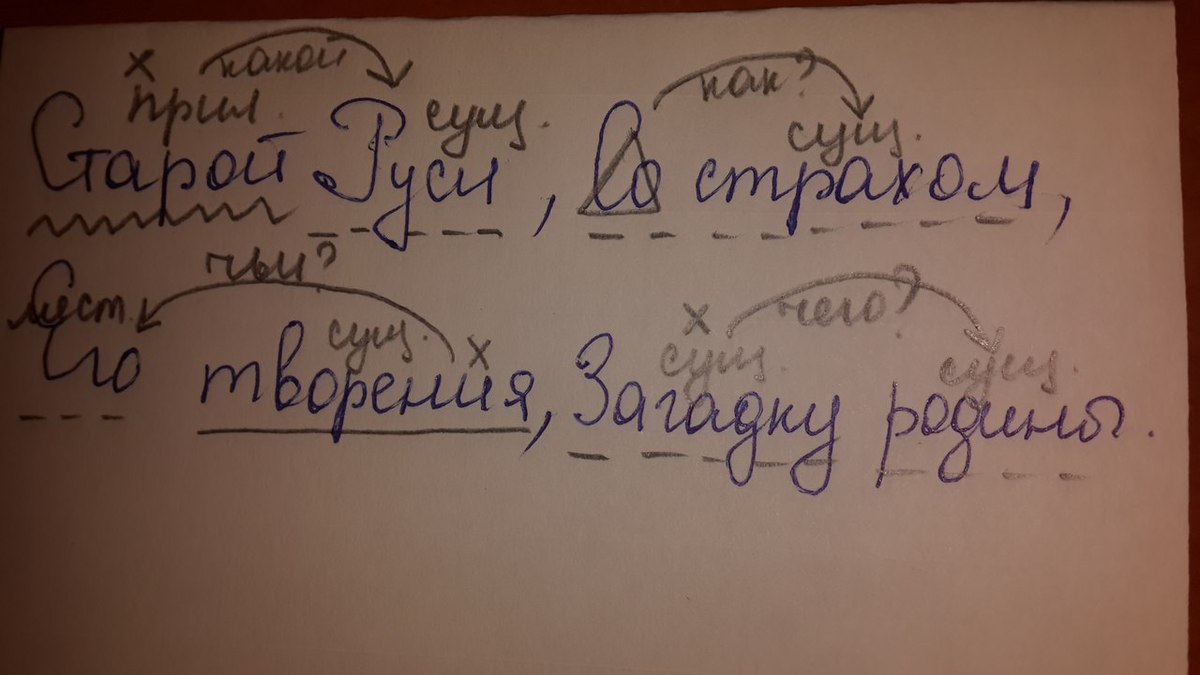 х какой
прил. сущ. как? сущ.
Старой Руси, Со страхом,
мест. чьи? сущ. х х сущ. чего? сущ.
Его творения, Загадку родины.